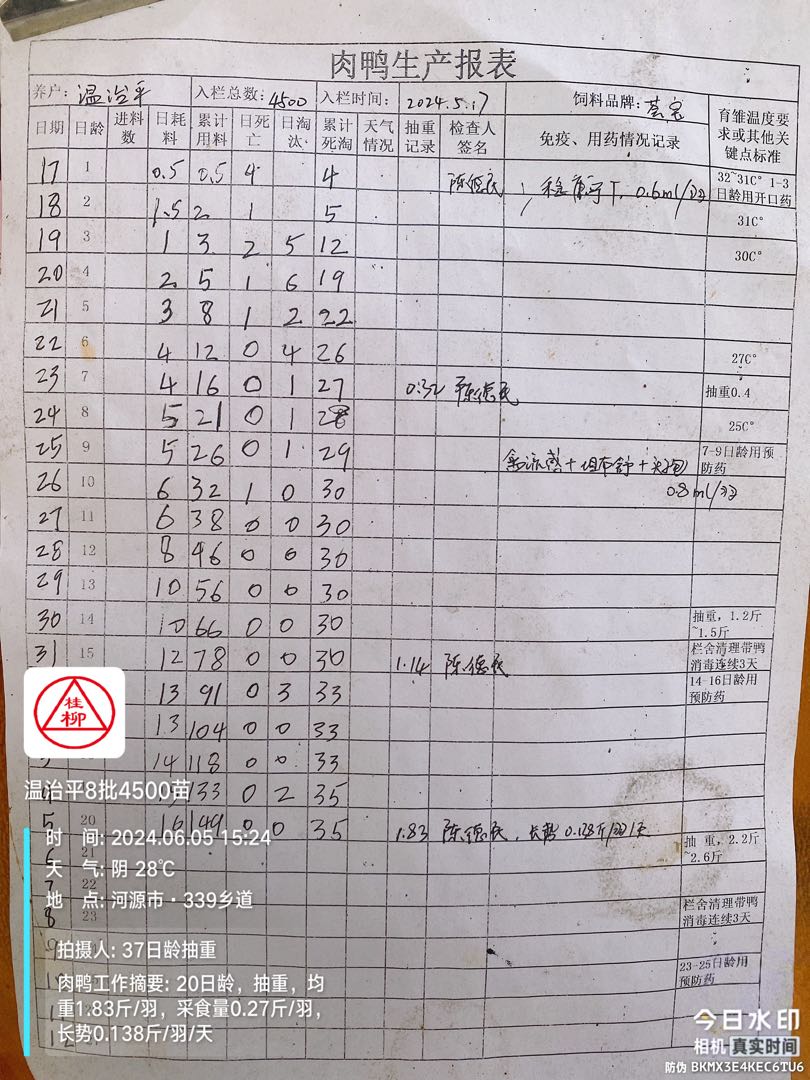 肉鸭生产报表
养户: 温治平 入栏总数: 4500 入栏时间: 2024.5.17 饲料品牌:
日期 日龄 进料数 日耗料 累计用料 日死亡 日淘汰 累计死淘 天气情况 抽重记录 检查人签名 免疫、用药情况记录 育雏温度要求或其他关键点标准
17 1 0.5 0.5 4 4 陈德民 0.6ml/羽 32~31C° 1-3日龄用开口药
18 2 1.5 2 1 5 31C°
19 3 1 3 2 5 12 30C°
20 4 2 5 1 6 19
21 5 3 8 1 2 22
22 6 4 12 0 4 26 27C°
23 7 4 16 0 1 27 0.32 陈德民 抽重0.4
24 8 5 21 0 1 28 25C°
25 9 5 26 0 1 29 7-9日龄用预防药
26 10 6 32 1 0 30 0.8ml/羽
27 11 6 38 0 0 30
28 12 8 46 0 0 30
29 13 10 56 0 0 30
30 14 10 66 0 0 30 抽重，1.2斤~1.5斤
31 15 12 78 0 0 30 1.14 陈德民 栏舍清理带鸭消毒连续3天
13 91 0 3 33 14-16日龄用预防药
13 104 0 0 33
14 118 0 0 33
133 0 2 35
5 20 16 149 0 0 35 1.83 陈德民，长势0.138斤/羽/天 抽 重，2.2斤~2.6斤
6 21
7 22
8 23 栏舍清理带鸭消毒连续3天
9
23-25日龄用预防药
桂柳
温治平8批4500苗
时 间: 2024.06.05 15:24
天 气: 阴 28℃
地 点: 河源市·339乡道
拍摄人: 37日龄抽重
肉鸭工作摘要: 20日龄，抽重，均
重1.83斤/羽，采食量0.27斤/羽，
长势0.138斤/羽/天
今日水印
相机 真实时间
防伪 BKMX3E4KEC6TU6